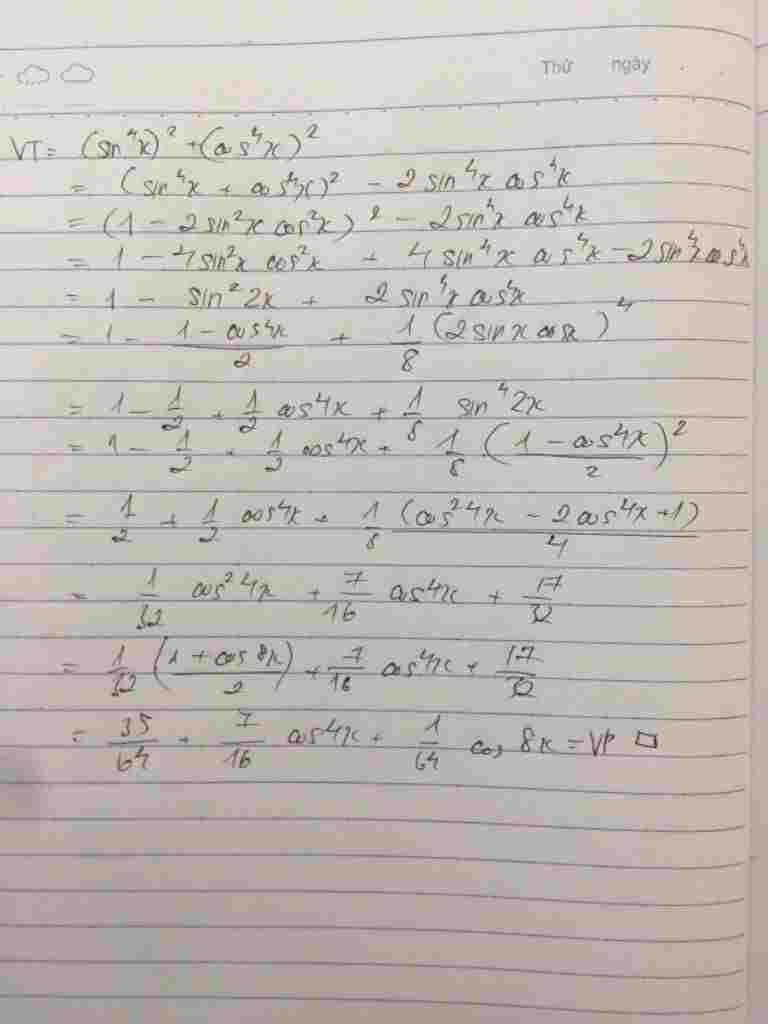 Thứ ngày
VT = (sin⁴x)² + (cos⁴x)²
= (sin⁴x + cos⁴x)² - 2 sin⁴x cos⁴x
= (1 - 2 sin²x cos²x)² - 2 sin⁴x cos⁴x
= 1 - 4 sin²x cos²x + 4 sin⁴x cos⁴x - 2 sin⁴x cos⁴x
= 1 - sin²2x + 2 sin⁴x cos⁴x
= 1 - (1 - cos4x)/2 + 1/8 (2 sin x cos x)⁴
= 1 - 1/2 + 1/2 cos4x + 1/8 sin⁴2x
= 1 - 1/2 + 1/2 cos4x + 1/8 ((1 - cos4x)/2)²
= 1/2 + 1/2 cos4x + 1/8 (cos²4x - 2cos4x + 1)/4
= 1/32 cos²4x + 7/16 cos4x + 17/32
= 1/32 ((1 + cos8x)/2) + 7/16 cos4x + 17/32
= 35/64 + 7/16 cos4x + 1/64 cos 8x = VP □